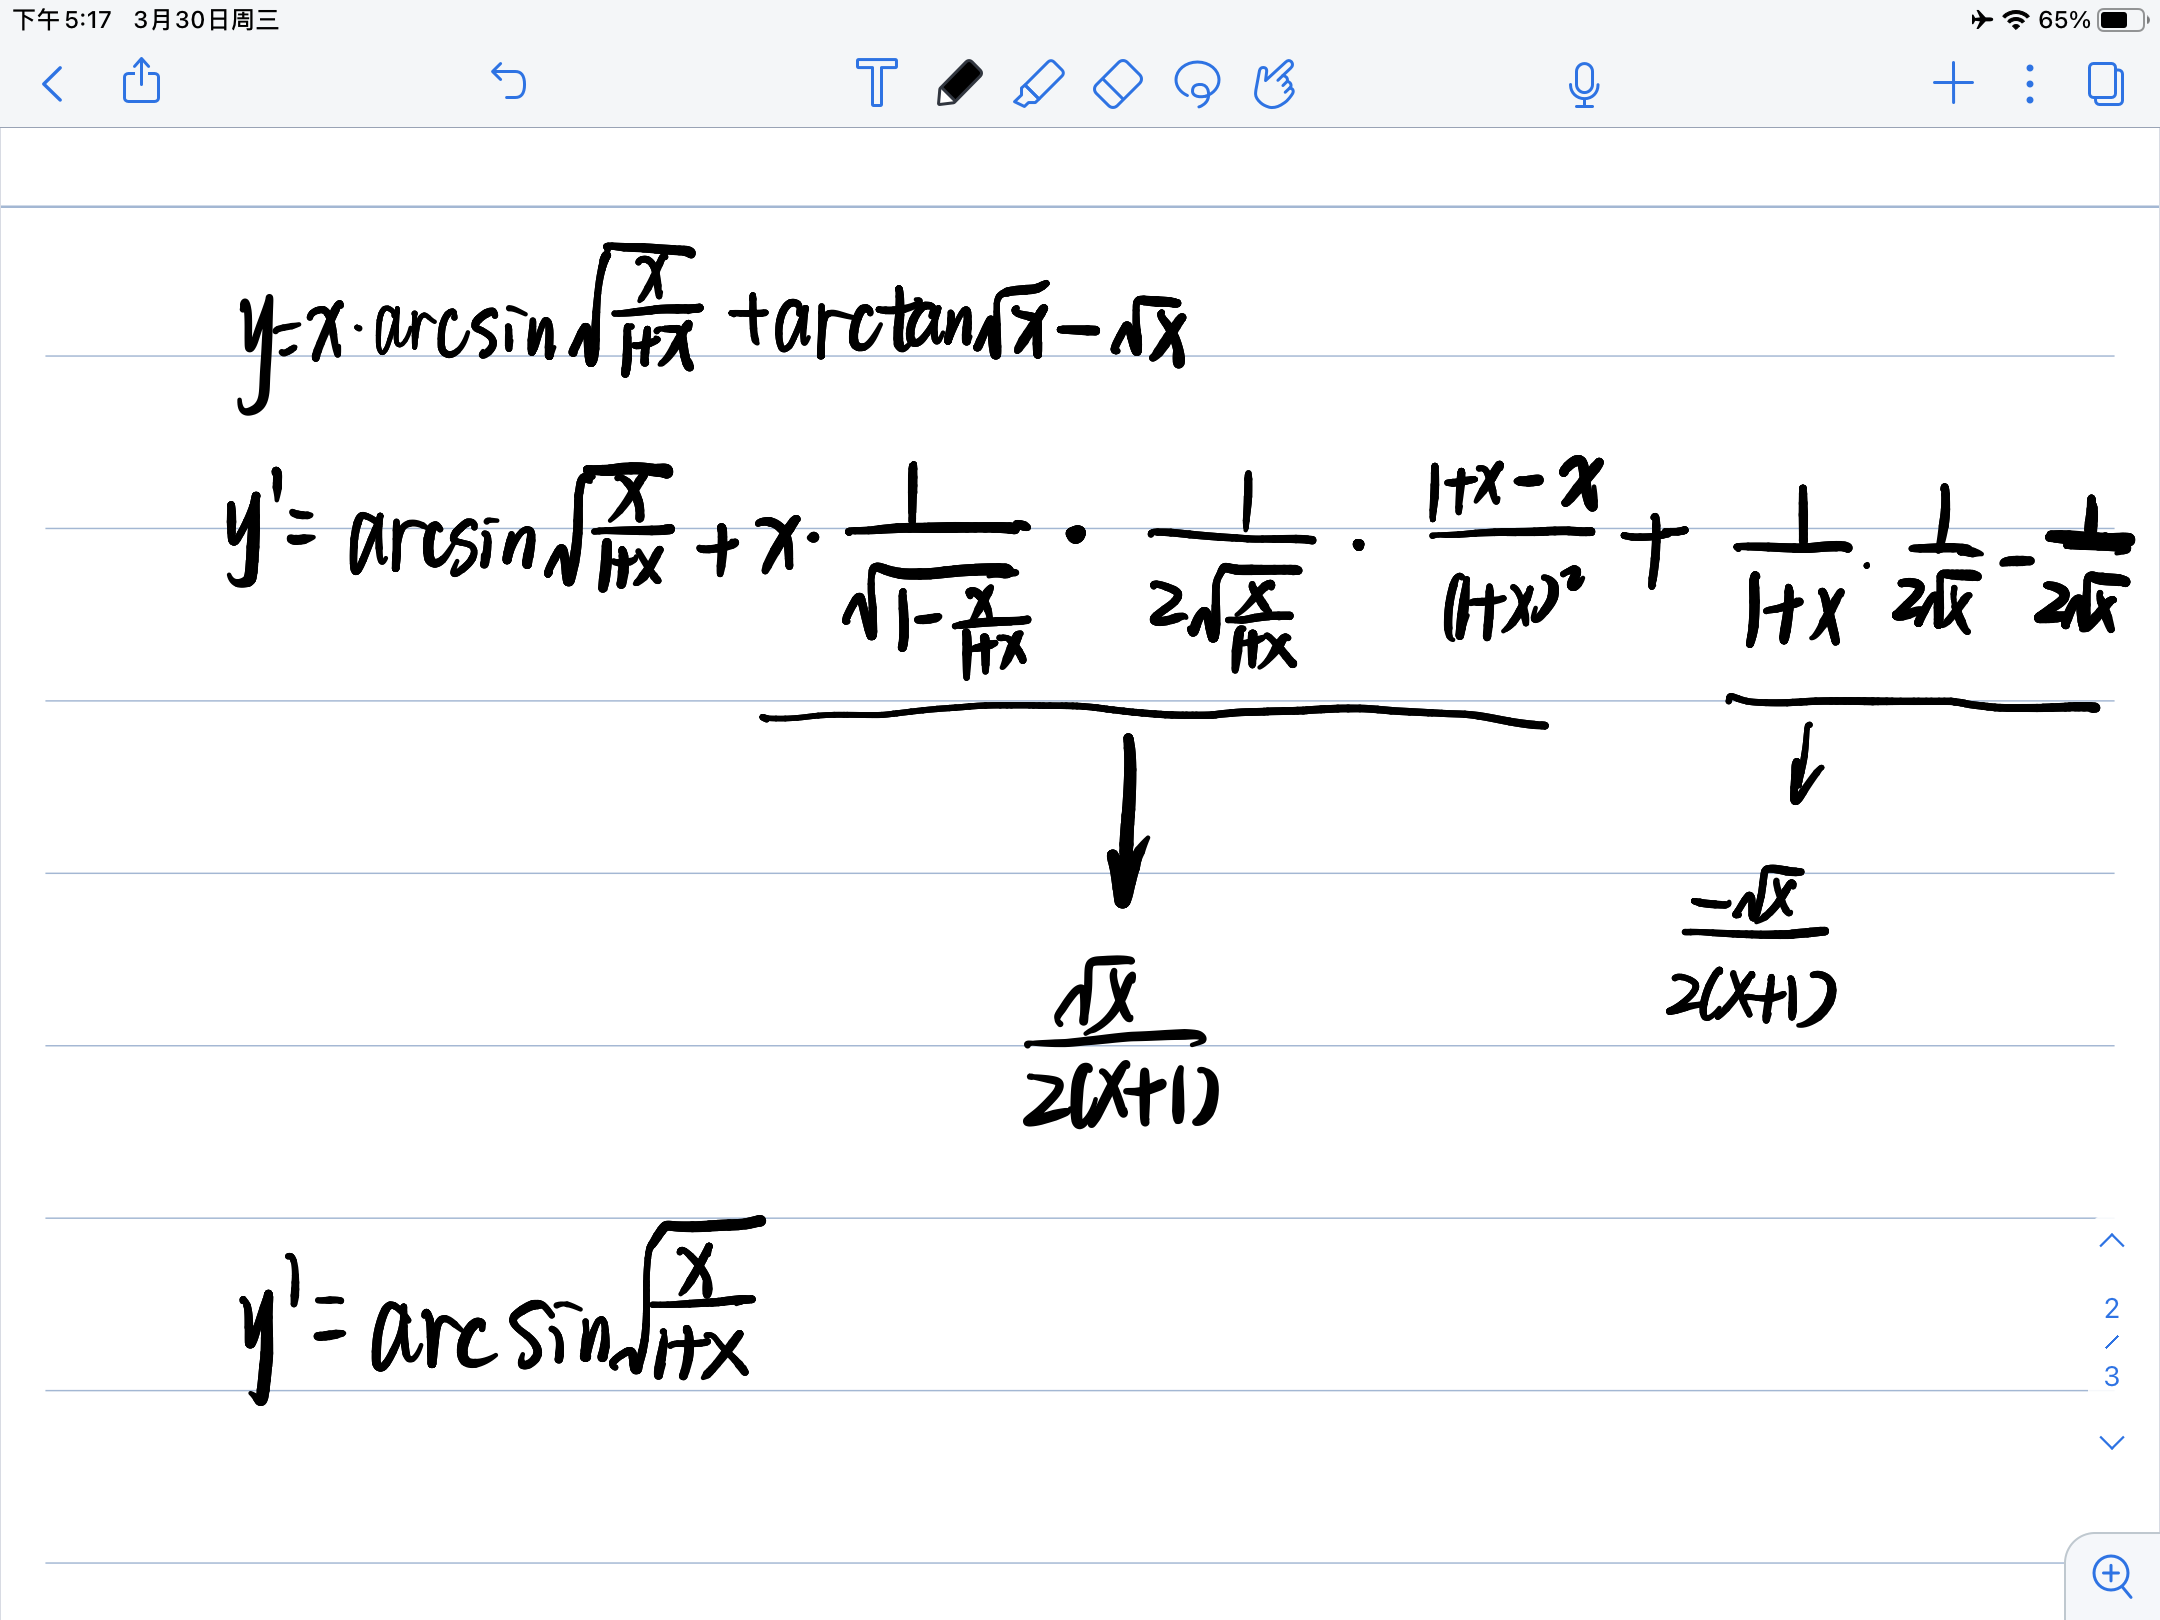 下午5:17 3月30日周三 65%
T
y=x·arcsin√(x/(1+x)) +arctan√x-√x
y'= arcsin√(x/(1+x)) + x· 1/√(1-x/(1+x)) · 1/(2√(x/(1+x))) · (1+x-x)/(1+x)² + 1/(1+x) · 1/(2√x) - 1/(2√x)
√x/(2(x+1)) -√x/(2(x+1))
y'= arcsin√(x/(1+x))
2/3